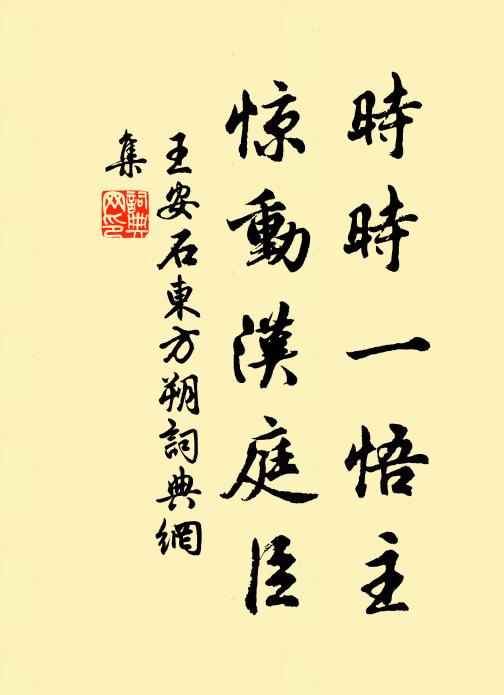 時時一悟主
惊動漢庭臣
王安石東方朔詞典網
集
詞典
网印